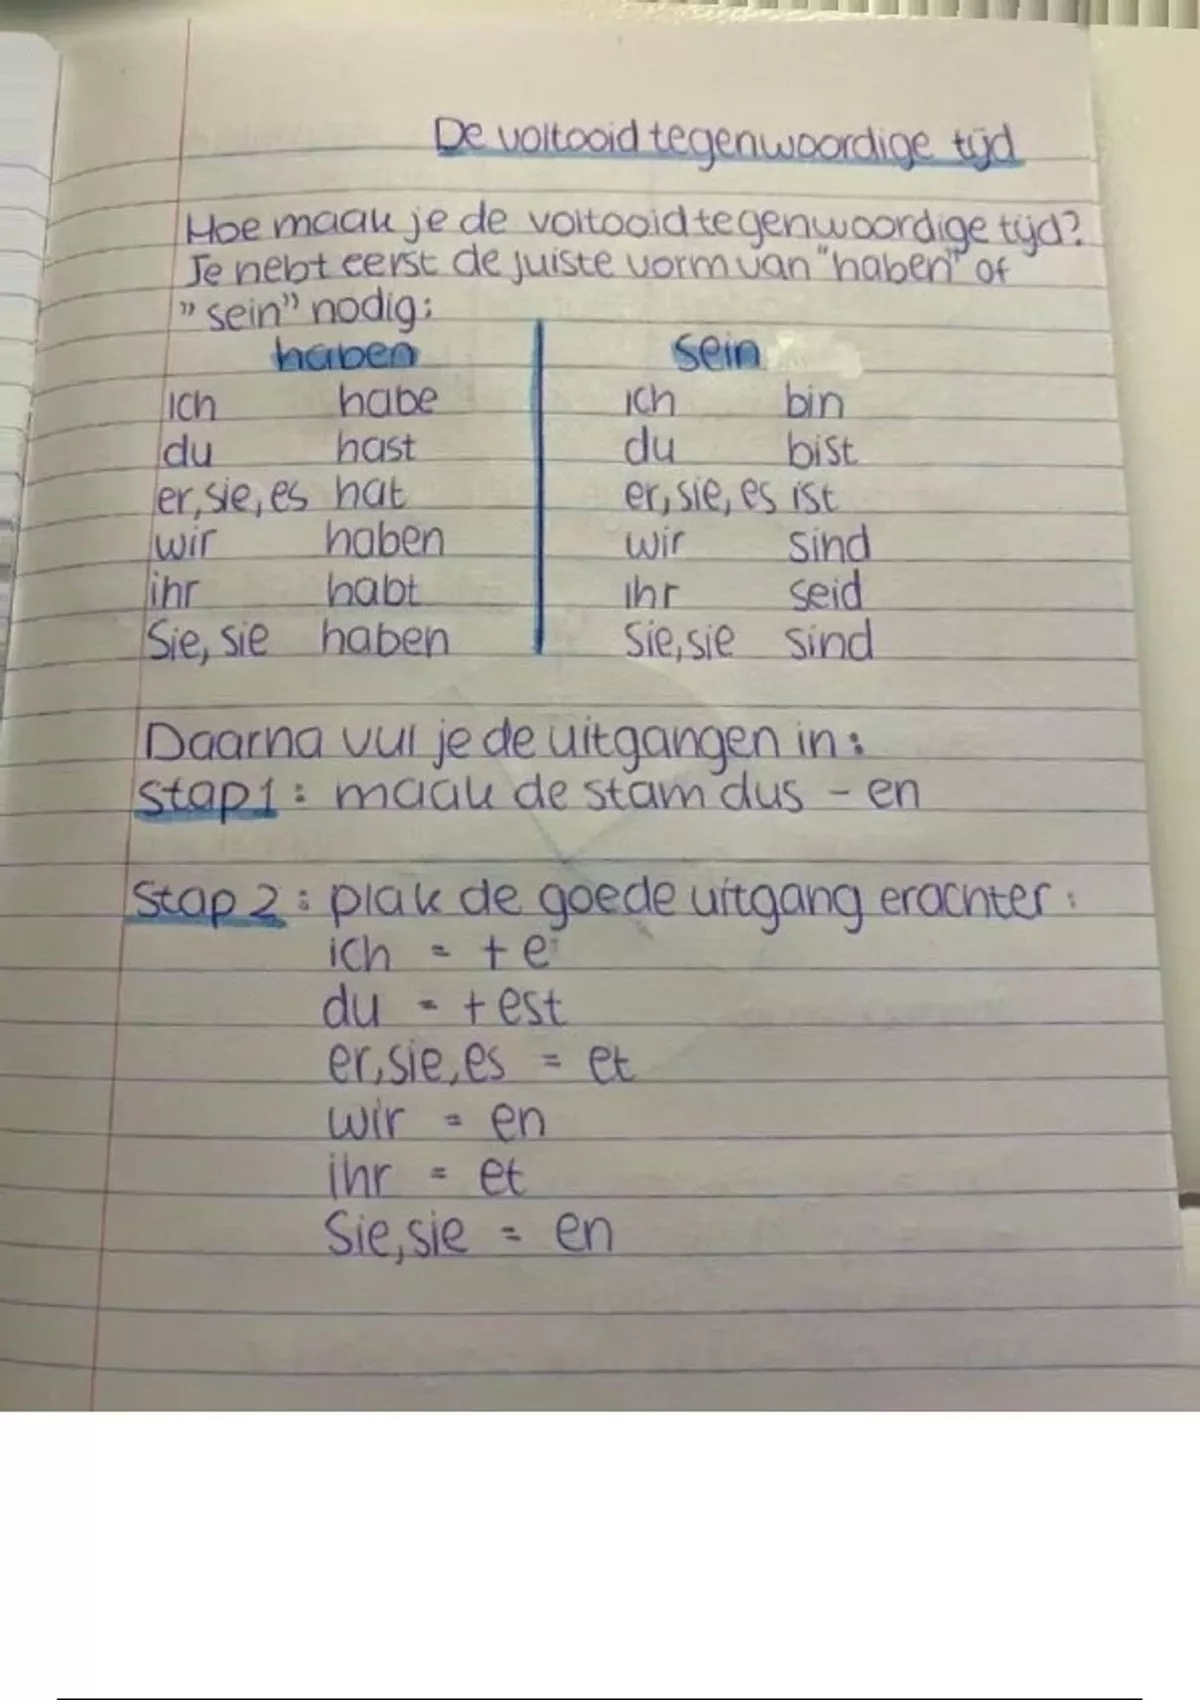 De voltooid tegenwoordige tijd
Hoe maak je de voltooid tegenwoordige tijd?
Je hebt eerst de juiste vorm van "haben" of
"sein" nodig:
haben sein
ich habe ich bin
du hast du bist
er, sie, es hat er, sie, es ist
wir haben wir sind
ihr habt ihr seid
Sie, sie haben Sie, sie sind
Daarna vul je de uitgangen in:
Stap 1: maak de stam dus - en
Stap 2: plak de goede uitgang erachter:
ich = + e
du = + est
er, sie, es = et
wir = en
ihr = et
Sie, sie = en